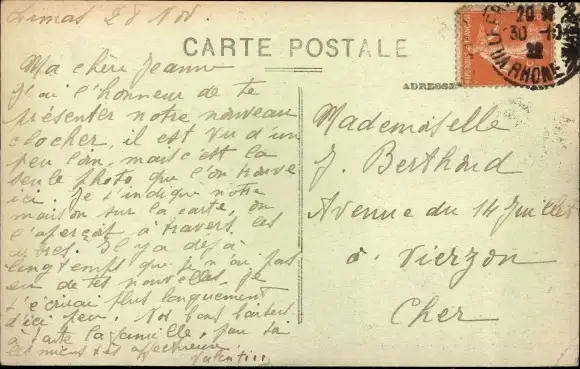 Limas 28 Nov.
CARTE POSTALE
Ma chère Jeanne
J'ai l'honneur de te
présenter notre nouveau
clocher, il est vu d'un
peu loin, mais c'est la
seule photo que l'on trouve
ici. Je t'indique notre
maison sur la carte, on
l'aperçoit à travers les
arbres. Il y a déjà
longtemps que je n'ai pas
eu de tes nouvelles, je
t'écrirai plus longuement
d'ici peu. Nos bons baisers
à toute la famille, pour toi
les miens très affectueux.
Valentine
ADRESSE
Mademoiselle
J. Berthoud
Avenue du 14 Juillet
à Vierzon
Cher
RHONE